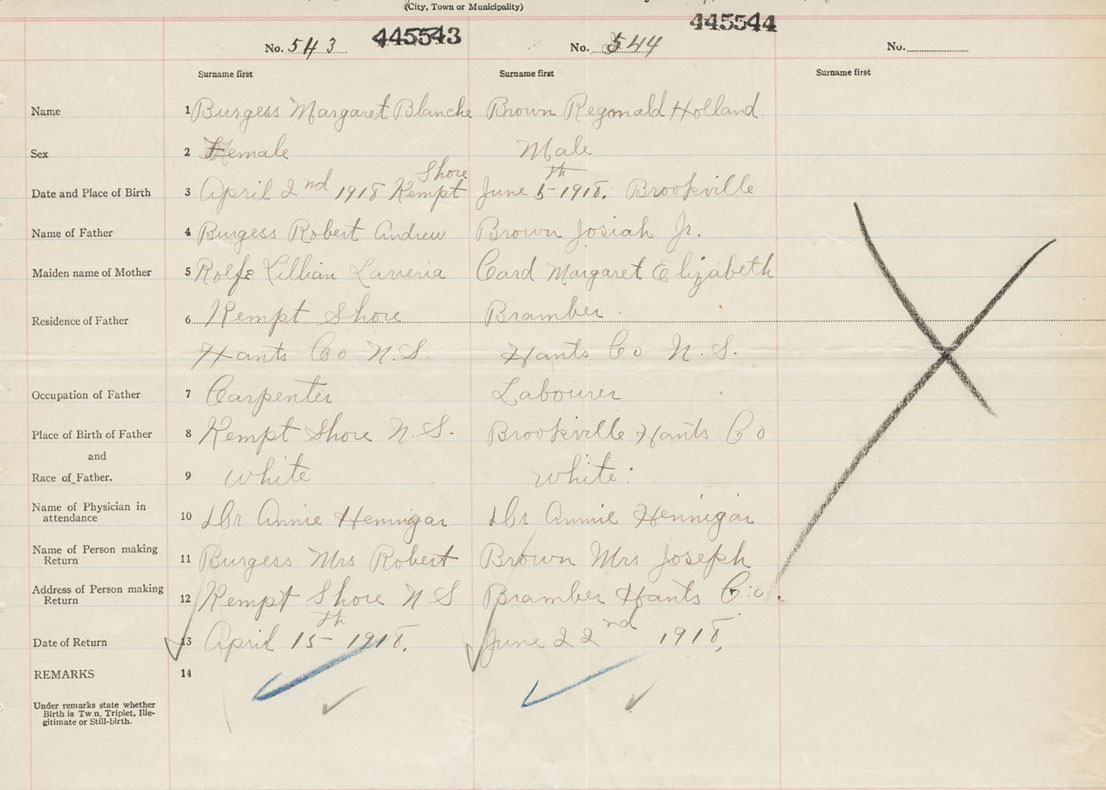 (City, Town or Municipality)
No. 543 445543 No. 544 445544 No.
Surname first Surname first Surname first
Name 1 Burgess Margaret Blanche Brown Regonald Holland
Sex 2 Female Male
Shore
Date and Place of Birth 3 April 2nd 1918 Kempt June 5th 1918. Brookville
Name of Father 4 Burgess Robert Andrew Brown Josiah Jr.
Maiden name of Mother 5 Rolfe Lillian Laveria Card Margaret Elizabeth
Residence of Father 6 Kempt Shore Bramber
Hants Co N.S. Hants Co N.S.
Occupation of Father 7 Carpenter Labourer
Place of Birth of Father 8 Kempt Shore N S. Brookville Hants Co
and
Race of Father. 9 White White
Name of Physician in
attendance 10 Dr Annie Hennigar Dr Annie Hennigar
Name of Person making
Return 11 Burgess Mrs Robert Brown Mrs Joseph
Address of Person making
Return 12 Kempt Shore N S Bramber Hants Co.
Date of Return 13 April 15th 1918. June 22nd 1918,
REMARKS 14
Under remarks state whether
Birth is Tw n, Triplet, Ille-
gitimate or Still-birth.